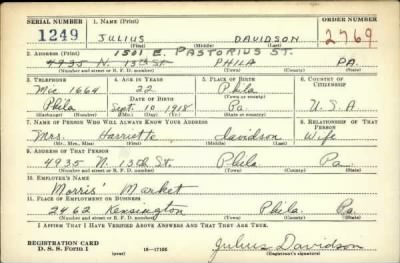 SERIAL NUMBER 1. NAME (Print) ORDER NUMBER
1249 JULIUS DAVIDSON 2769
(First) (Middle) (Last)
1501 E. PASTORIUS ST.
2. ADDRESS (Print)
4935 N. 13th St. PHILA PA.
(Number and street or R. F. D. number) (Town) (County) (State)
3. TELEPHONE 4. AGE IN YEARS 5. PLACE OF BIRTH 6. COUNTRY OF CITIZENSHIP
Mic 1664 22 Phila
DATE OF BIRTH (Town or county)
Phila Sept. 10 1918 Pa. U.S.A
(Exchange) (Number) (Mo.) (Day) (Yr.) (State or country)
7. NAME OF PERSON WHO WILL ALWAYS KNOW YOUR ADDRESS 8. RELATIONSHIP OF THAT PERSON
Mrs. Harriette Davidson Wife
(Mr., Mrs., Miss) (First) (Middle) (Last)
9. ADDRESS OF THAT PERSON
4935 N. 13th St. Phila Pa.
(Number and street or R. F. D. number) (Town) (County) (State)
10. EMPLOYER'S NAME
Morris' Market
11. PLACE OF EMPLOYMENT OR BUSINESS
2462 Kensington Phila. Pa.
(Number and street or R. F. D. number) (Town) (County) (State)
I AFFIRM THAT I HAVE VERIFIED ABOVE ANSWERS AND THAT THEY ARE TRUE.
REGISTRATION CARD
D. S. S. Form 1 (over) 16—17105 Julius Davidson
(Registrant's signature)